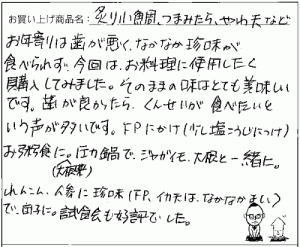 お買い上げ商品名:炙り小鯛、つまみたら、やわ天など
お年寄りは歯が悪く、なかなか珍味が
食べられず、今回は、お料理に使用したく
購入してみました。そのままの味はとても美味しい
です。歯が良かったら、くんせいが食べたいと
いう声が多いです。FPにかけ(少し塩こうじにつけ)
お粥食に。圧力鍋で、ジャガイモ、大根と一緒に。
れんこん、人参に珍味(FP、イカ天は、なかなかまい)
で、団子に。試食会も好評でした。